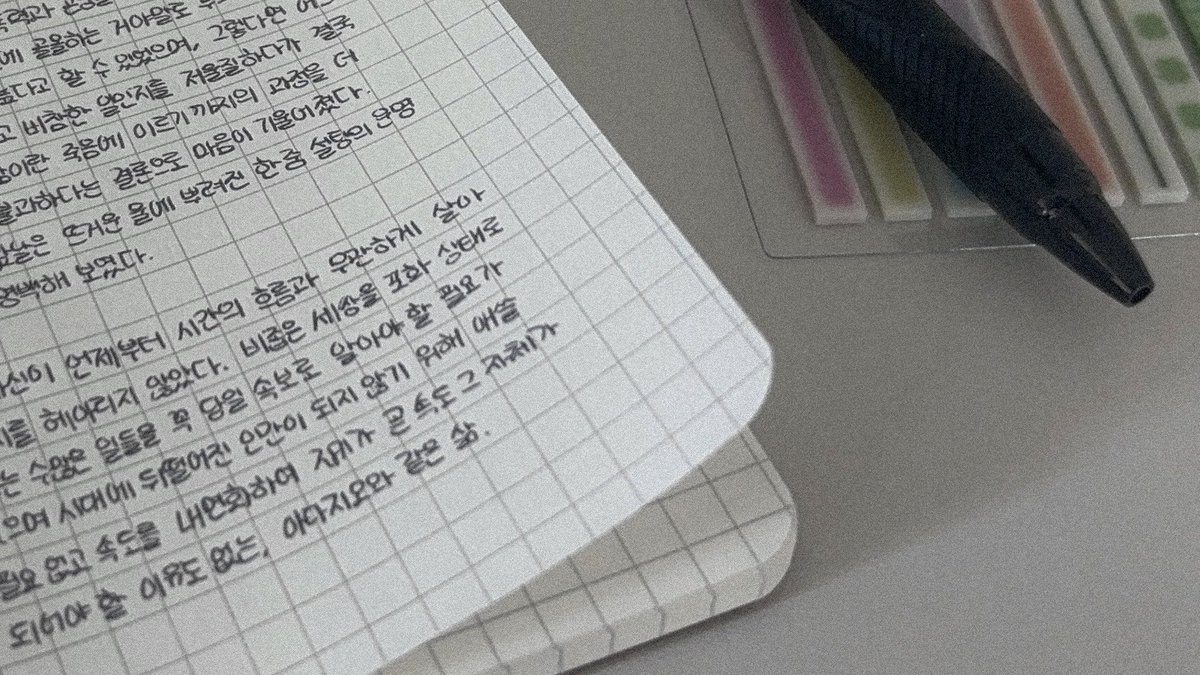 에 골몰하는 거야말로
높다고 할 수 있었으며, 그렇다면
고 비참한 일인지를 저울질하다가 결국
죽음에 이르기까지의 과정을 더
불과하다는 결론으로 마음이 기울어졌다.
뜨거운 물에 뿌려진 한 줌 설탕의 운명
명백해 보였다.
자신이 언제부터 시간의 흐름과 무관하게 살아
헤아리지 않았다. 비좁은 세상을 포화 상태로
는 수많은 일들을 꼭 당일 속보로 알아야 할 필요가
으며 시대에 뒤떨어진 인간이 되지 않기 위해 애쓸
필요 없고 속도를 내면화하여 자기가 곧 속도 그 자체가
되어야 할 이유도 없는, 아다지오와 같은 삶.